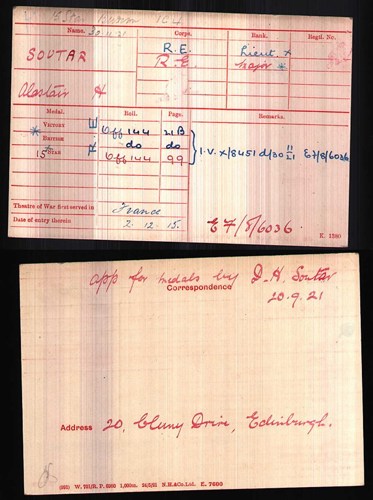 30.11.21
Corps. Rank. Regtl. No.
SOUTAR R.E. Lieut. x
R.E. Major *
Alastair H
Medal. Roll. Page. Remarks.
* VICTORY RE Off 144 21B
BRITISH do do I.V. X/8451 d/30 11/21 E7/8/6036
15 STAR RE Off 144 99
Theatre of War first served in France
Date of entry therein 2.12.15.
E7/8/6036
K. 1380
app for medals by D. H. Soutar
Correspondence
20.9.21
Address 20, Cluny Drive, Edinburgh.
N.H.&Co.Ltd. E. 7600